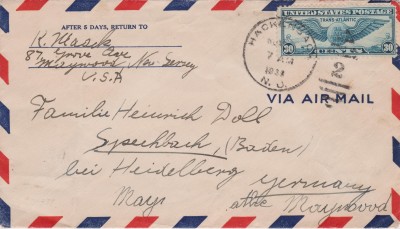 AFTER 5 DAYS, RETURN TO
87 Grove Ave
Maywood, New Jersey
U.S.A
UNITED STATES POSTAGE
TRANS-ATLANTIC
30 CENTS 30
HACK
7 AM
N. J.
VIA AIR MAIL
Familie Heinrich Doll
Spechbach, (Baden)
bei Heidelberg
Germany